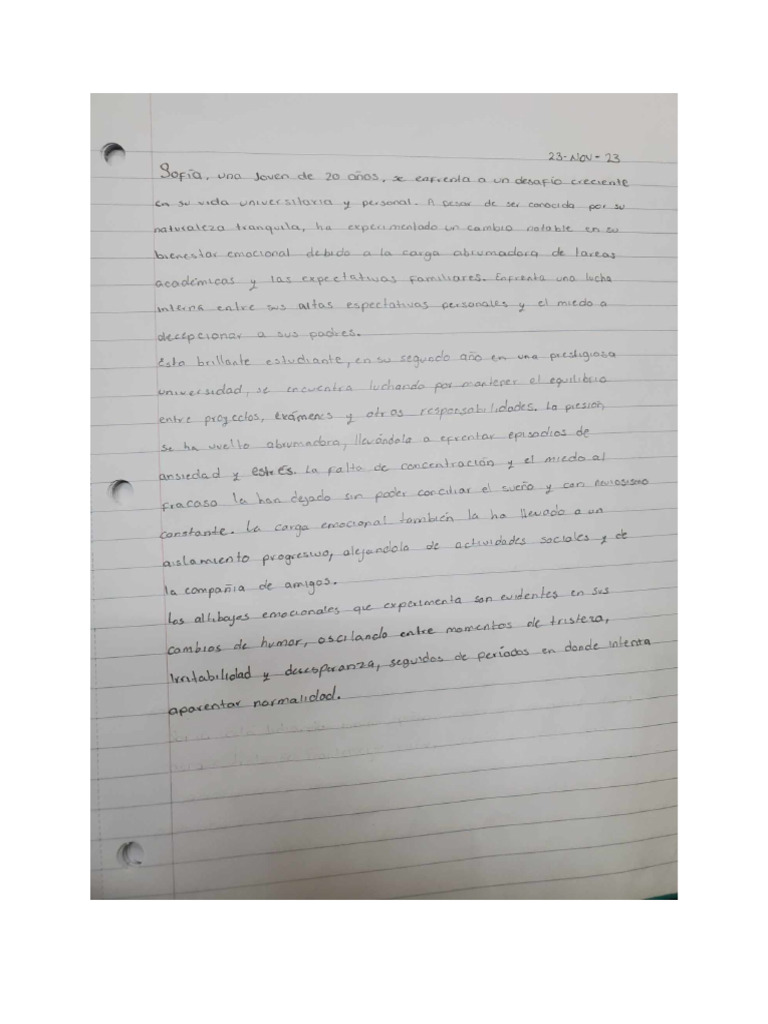 23-Nov-23
Sofía, una Joven de 20 años, se enfrenta a un desafío creciente
en su vida universitaria y personal. A pesar de ser conocida por su
naturaleza tranquila, ha experimentado un cambio notable en su
bienestar emocional debido a la carga abrumadora de tareas
académicas y las expectativas familiares. Enfrenta una lucha
interna entre sus altas espectativas personales y el miedo a
decepcionar a sus padres.
Esta brillante estudiante, en su segundo año en una prestigiosa
universidad, se encuentra luchando por mantener el equilibrio
entre proyectos, exámenes y otras responsabilidades. La presión
se ha vuelto abrumadora, llevándola a efrentar episodios de
ansiedad y estrés. La falta de concentración y el miedo al
fracaso la han dejado sin poder conciliar el sueño y con nerviosismo
constante. La carga emocional también la ha llevado a un
aislamiento progresivo, alejandola de actividades sociales y de
la compañia de amigos.
Los altibajos emocionales que experimenta son evidentes en sus
cambios de humor, oscilando entre momentos de tristeza,
Irritabilidad y desesperanza, seguidos de períodos en donde intenta
aparentar normalidad.